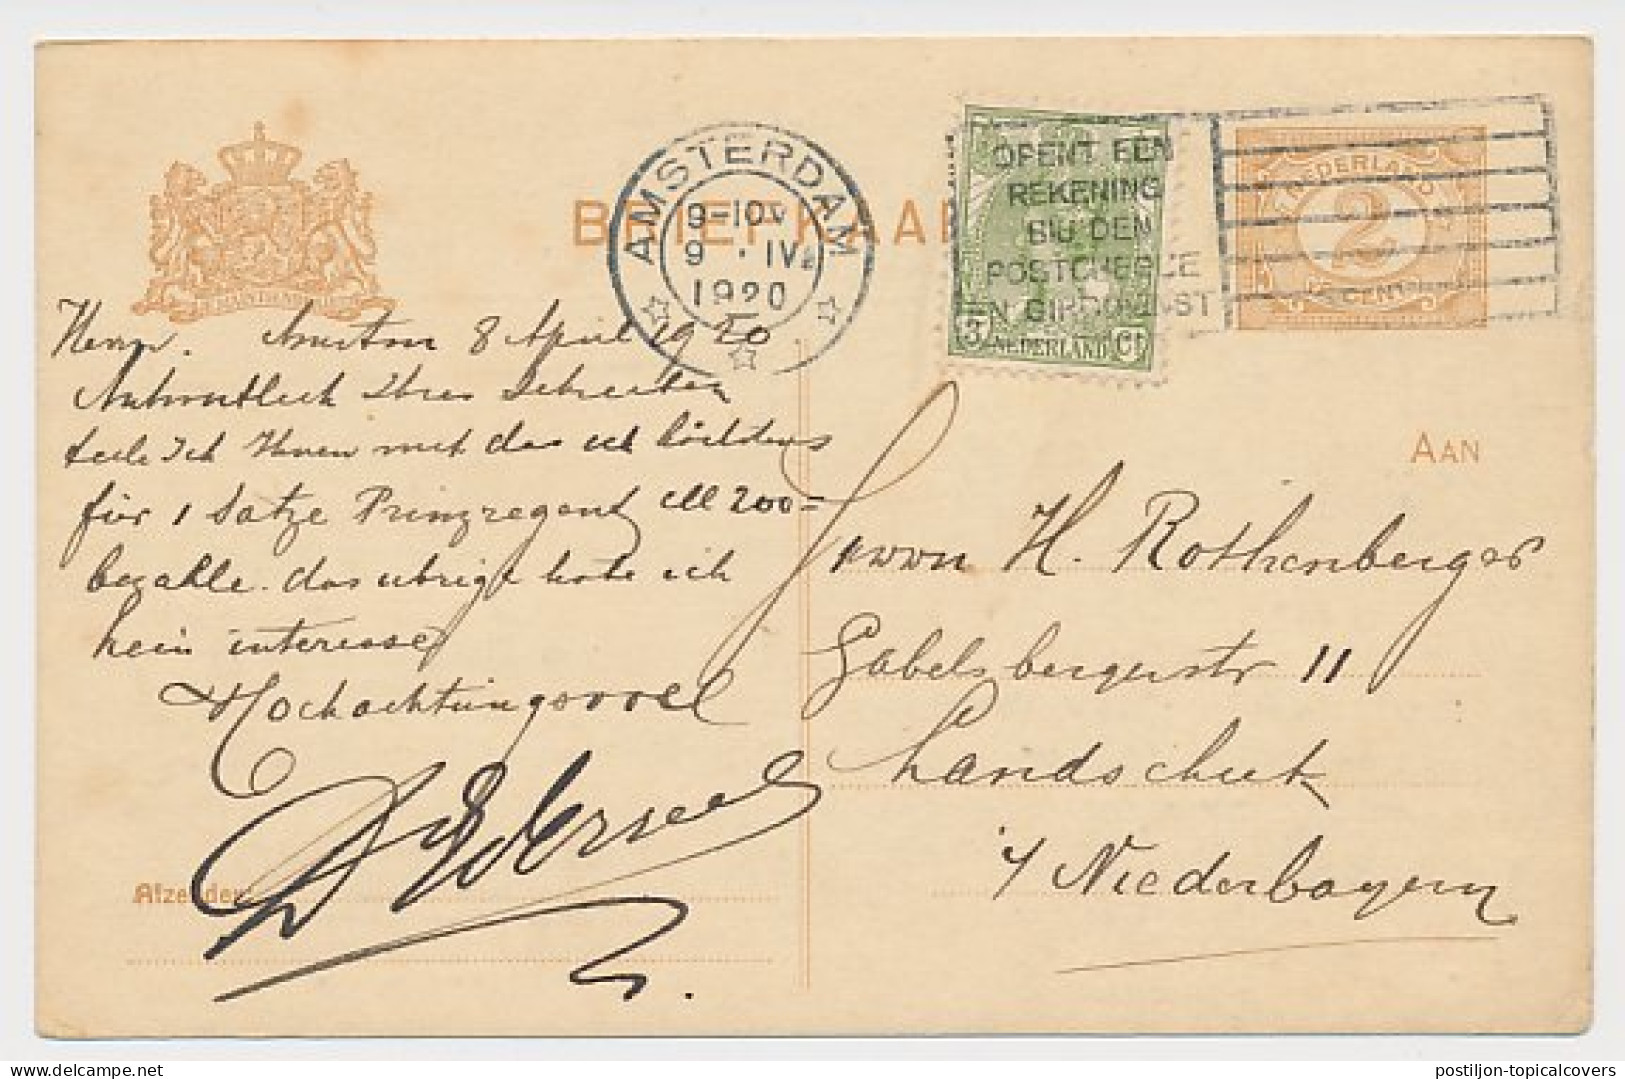 BRIEFKAAR
AMSTERDAM
9-10V
9 · IV
1920
OPENT EEN
REKENING
BIJ DEN
POSTCHEQUE
EN GIRODIENST
NEDERLAND
2
CENT
3 NEDERLAND Ct
Herrn. Amstdm 8 April 1920
Antwortlich Ihres Schreiben
teile Ich Ihnen mit das ich höchstens
für 1 Satze Prinzregent M 200=
bezahle. das ubrige habe ich
kein interesse
Hochachtungsvoll
Afzender:
AAN
Herrn H. Rothenberger
Gabelsbergerstr 11
Landschut
i/ Niederbayern
postiljon-topicalcovers.com
postiljon-topicalcovers